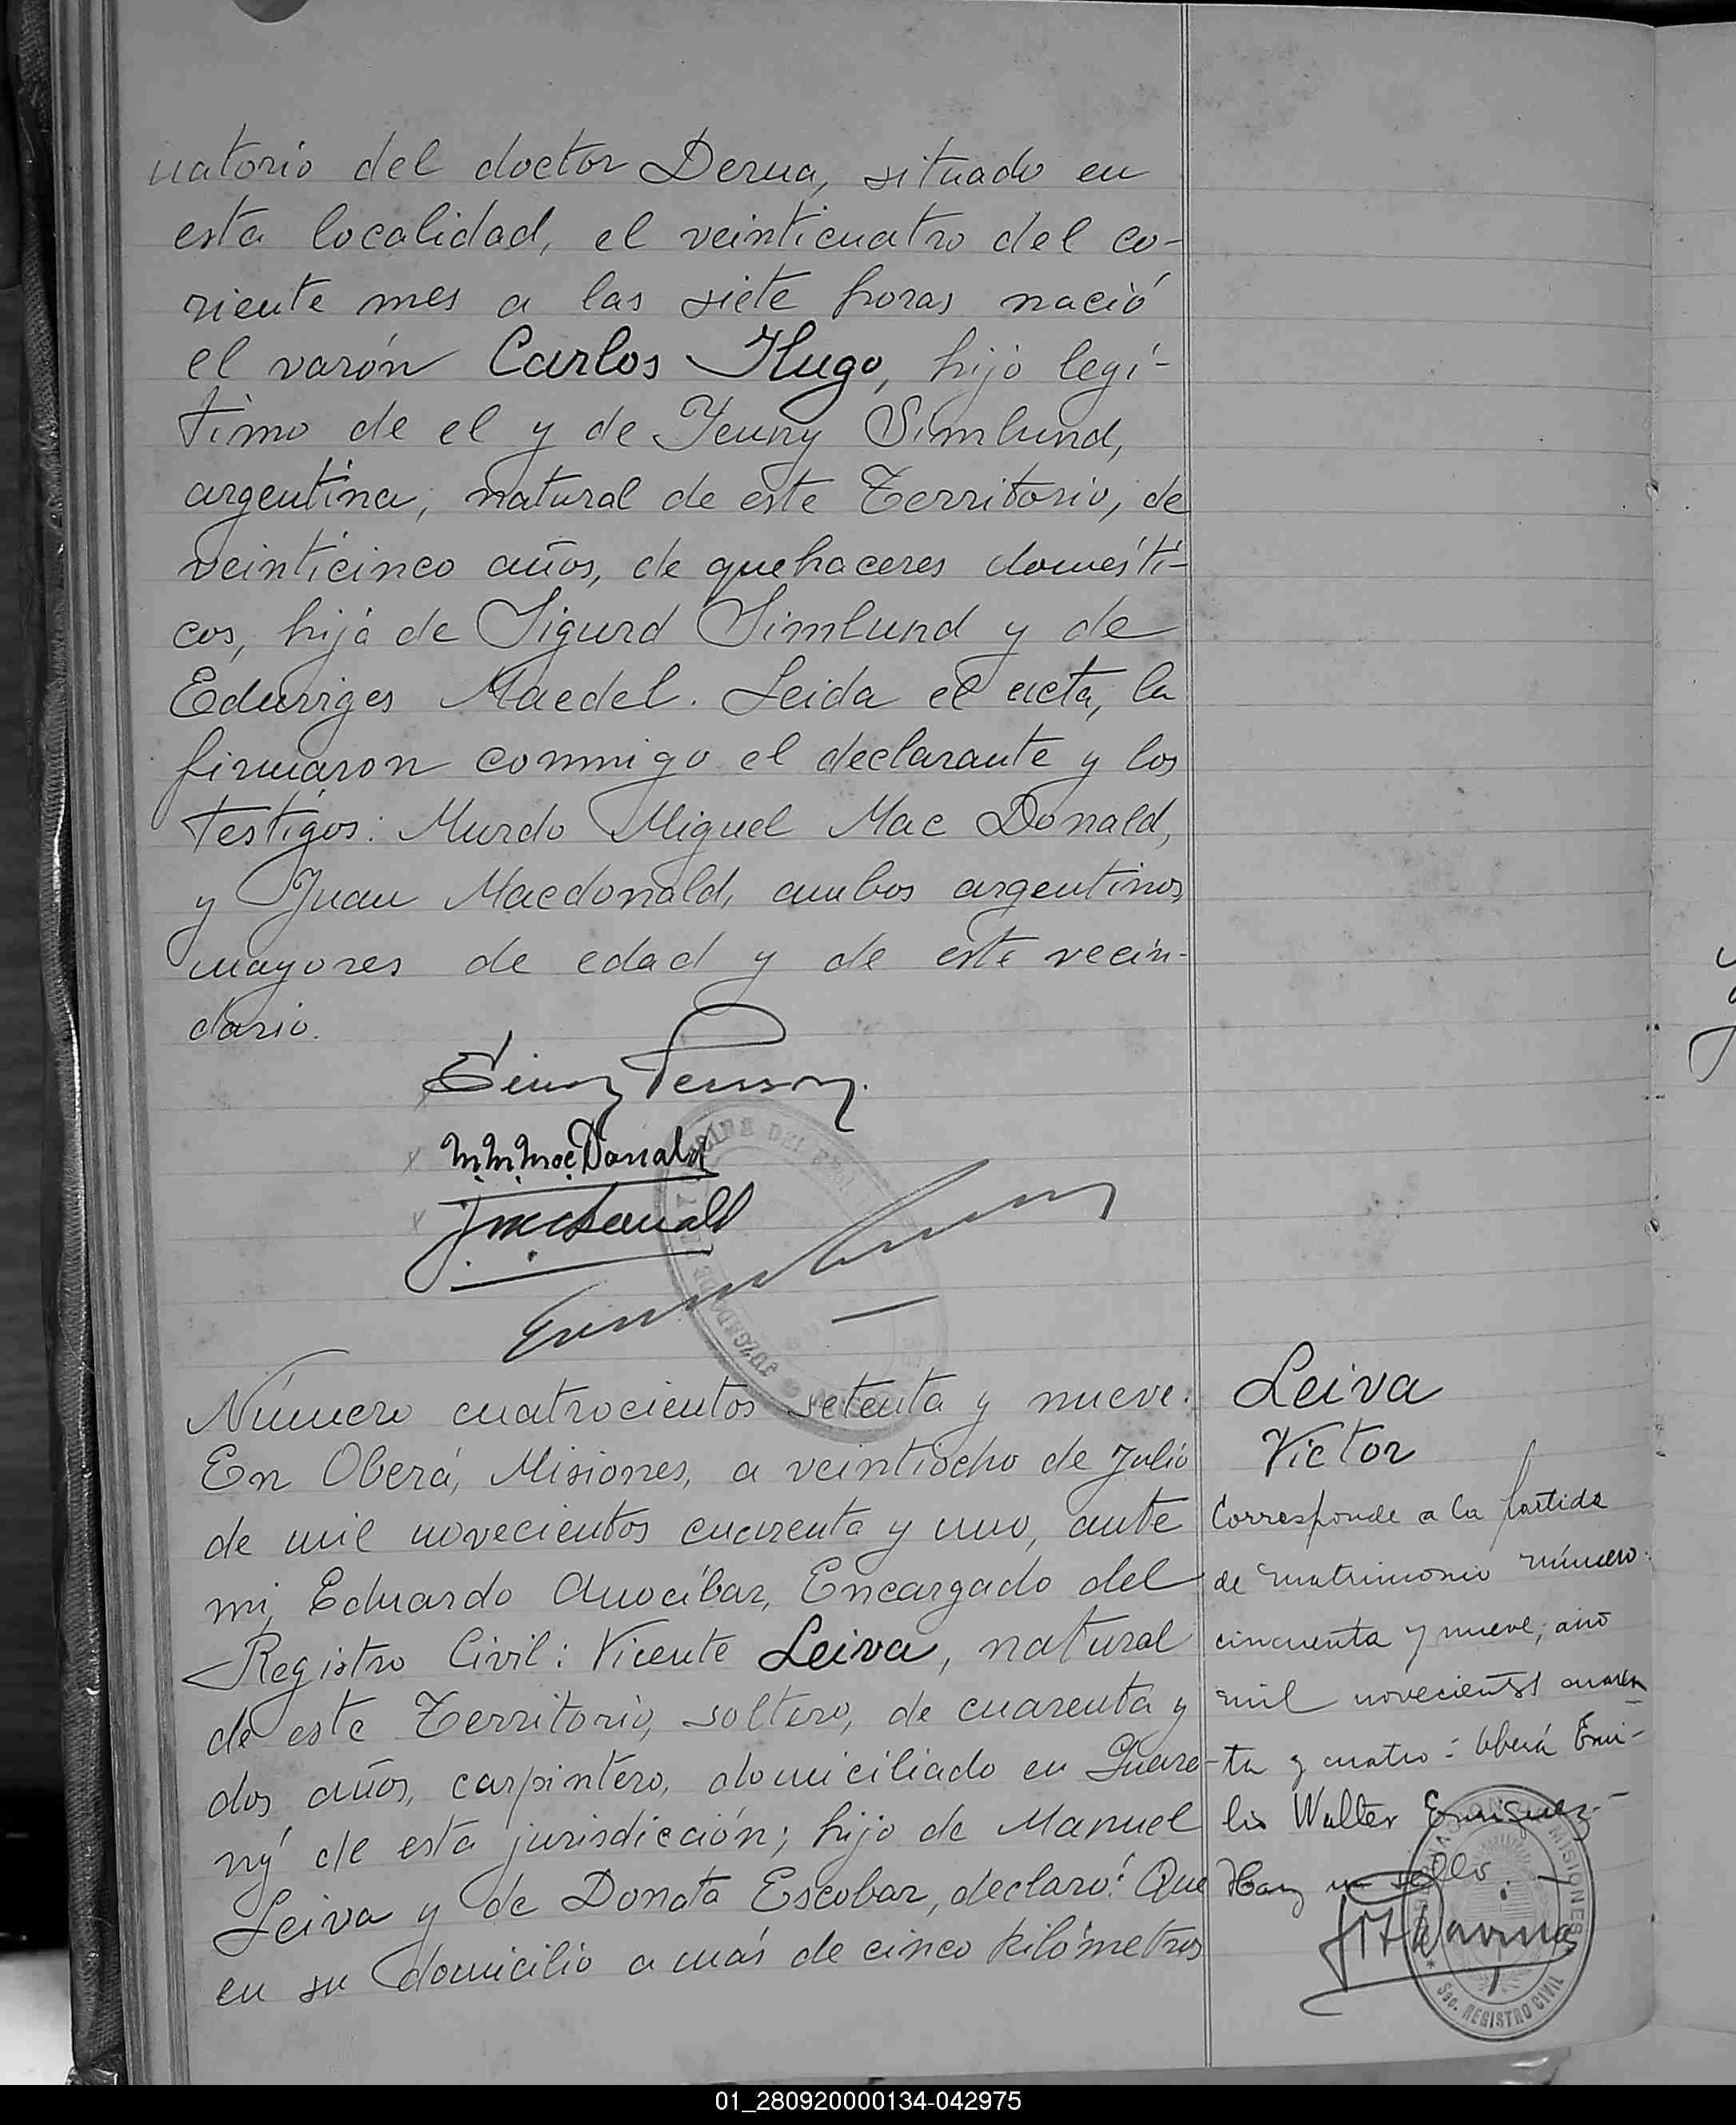 natorio del doctor Derna, situado en
esta localidad, el veinticuatro del co-
riente mes a las siete horas nació
el varón Carlos Hugo, hijo legí-
timo de el y de Jenny Simlund,
argentina, natural de este Territorio, de
veinticinco años, de quehaceres domésti-
cos, hija de Sigurd Simlund y de
Eduviges Maedel. Leida el acta, la
firmaron conmigo el declarante y los
testigos: Murdo Miguel Mac Donald,
y Juan Macdonald, ambos argentinos,
mayores de edad y de este vecin-
dario.
M. M. Mac Donald
Número cuatrocientos setenta y nueve:
En Oberá, Misiones, a veintiocho de Julio
de mil novecientos cuarenta y uno, ante
mi, Eduardo Anocíbar, Encargado del
Registro Civil: Vicente Leiva, natural
de este Territorio, soltero, de cuarenta y
dos años, carpintero, domiciliado en Guara-
ný de esta jurisdicción; hijo de Manuel
Leiva y de Donata Escobar, declaró: Que
en su domicilio a más de cinco kilómetros
Leiva
Victor
Corresponde a la partida
de matrimonio número
cincuenta y nueve, año
mil novecientos cuaren
ta y cuatro: Oberá Emi-
lio Walter Enriquez-
Hay un sello
MISIONES
Sec. REGISTRO CIVIL
01_280920000134-042975